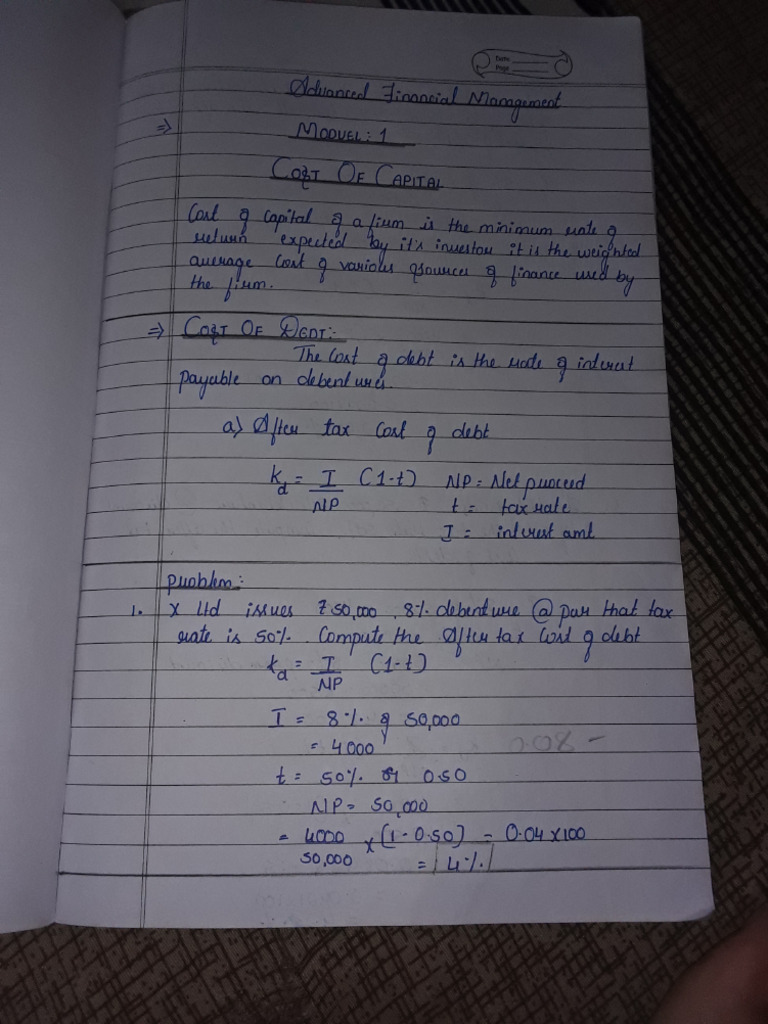 Date
Page
Advanced Financial Management
⇒ MODUEL: 1
COST OF CAPITAL
Cost of capital of a firm is the minimum rate of
return expected by it's investor it is the weighted
average cost of various sources of finance used by
the firm.
⇒ COST OF DEDT:-
The cost of debt is the rate of interest
payable on debentures.
a) After tax cost of debt
kd = I/NP (1-t) NP = Net proceed
t = tax rate
I = interest amt
problem:
1. X Ltd issues ₹50,000, 8% debenture @ par that tax
rate is 50%. Compute the After tax cost of debt
kd = I/NP (1-t)
I = 8% of 50,000
= 4000
t = 50% or 0.50
NP = 50,000
= 4000/50,000 x (1-0.50) = 0.04 x 100
= 4%